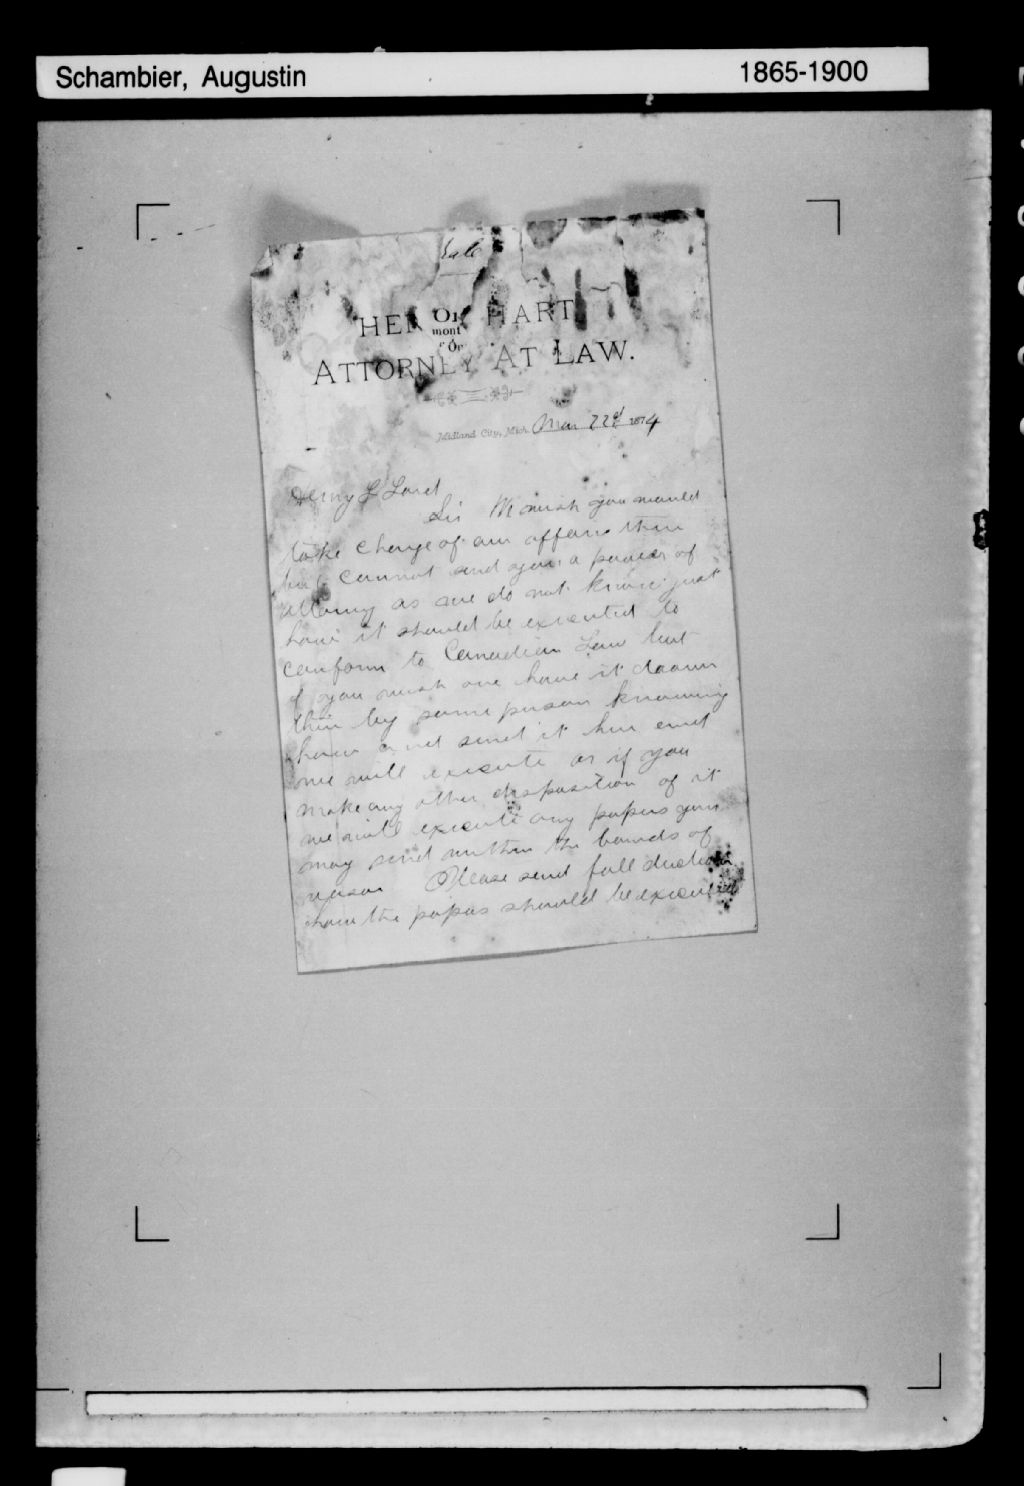 Schambier, Augustin 1865-1900
HEN HART
mont
ATTORNEY AT LAW.
Midland City, Mich. Mar 22d 1874
Henry L Lord
Sir We wish you would
take charge of our affairs then
but cannot send you a power of
attorny as we do not know just
how it should be executed to
conform to Canadian Law but
if you wish we have it drawn
then by some person knowing
how and send it her and
we will execute or if you
make any other disposition of it
we will execute any papers you
may send within the bounds of
reason Please send full
how the papers should be executed